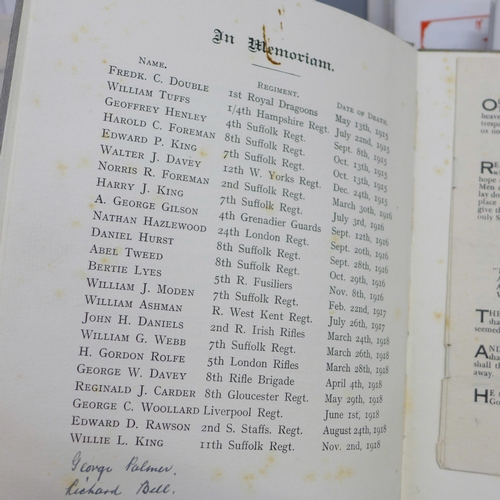 In Memoriam.
NAME. REGIMENT. DATE OF DEATH.
FREDK. C. DOUBLE 1st Royal Dragoons May 13th, 1915
WILLIAM TUFFS 1/4th Hampshire Regt. July 22nd, 1915
GEOFFREY HENLEY 4th Suffolk Regt. Sept. 8th, 1915
HAROLD C. FOREMAN 8th Suffolk Regt. Oct. 13th, 1915
EDWARD P. KING 7th Suffolk Regt. Oct. 13th, 1915
WALTER J. DAVEY 12th W. Yorks Regt. Dec. 24th, 1915
NORRIS R. FOREMAN 2nd Suffolk Regt. March 30th, 1916
HARRY J. KING 7th Suffolk Regt. July 3rd, 1916
A. GEORGE GILSON 4th Grenadier Guards Sept. 12th, 1916
NATHAN HAZLEWOOD 24th London Regt. Sept. 20th, 1916
DANIEL HURST 8th Suffolk Regt. Sept. 28th, 1916
ABEL TWEED 8th Suffolk Regt. Oct. 29th, 1916
BERTIE LYES 5th R. Fusiliers Nov. 8th, 1916
WILLIAM J. MODEN 7th Suffolk Regt. Feb. 22nd, 1917
WILLIAM ASHMAN R. West Kent Regt. July 26th, 1917
JOHN H. DANIELS 2nd R. Irish Rifles March 24th, 1918
WILLIAM G. WEBB 7th Suffolk Regt. March 26th, 1918
H. GORDON ROLFE 5th London Rifles March 28th, 1918
GEORGE W. DAVEY 8th Rifle Brigade April 4th, 1918
REGINALD J. CARDER 8th Gloucester Regt. May 29th, 1918
GEORGE C. WOOLLARD Liverpool Regt. June 1st, 1918
EDWARD D. RAWSON 2nd S. Staffs. Regt. August 24th, 1918
WILLIE L. KING 11th Suffolk Regt. Nov. 2nd, 1918
George Palmer.
Richard Bell.